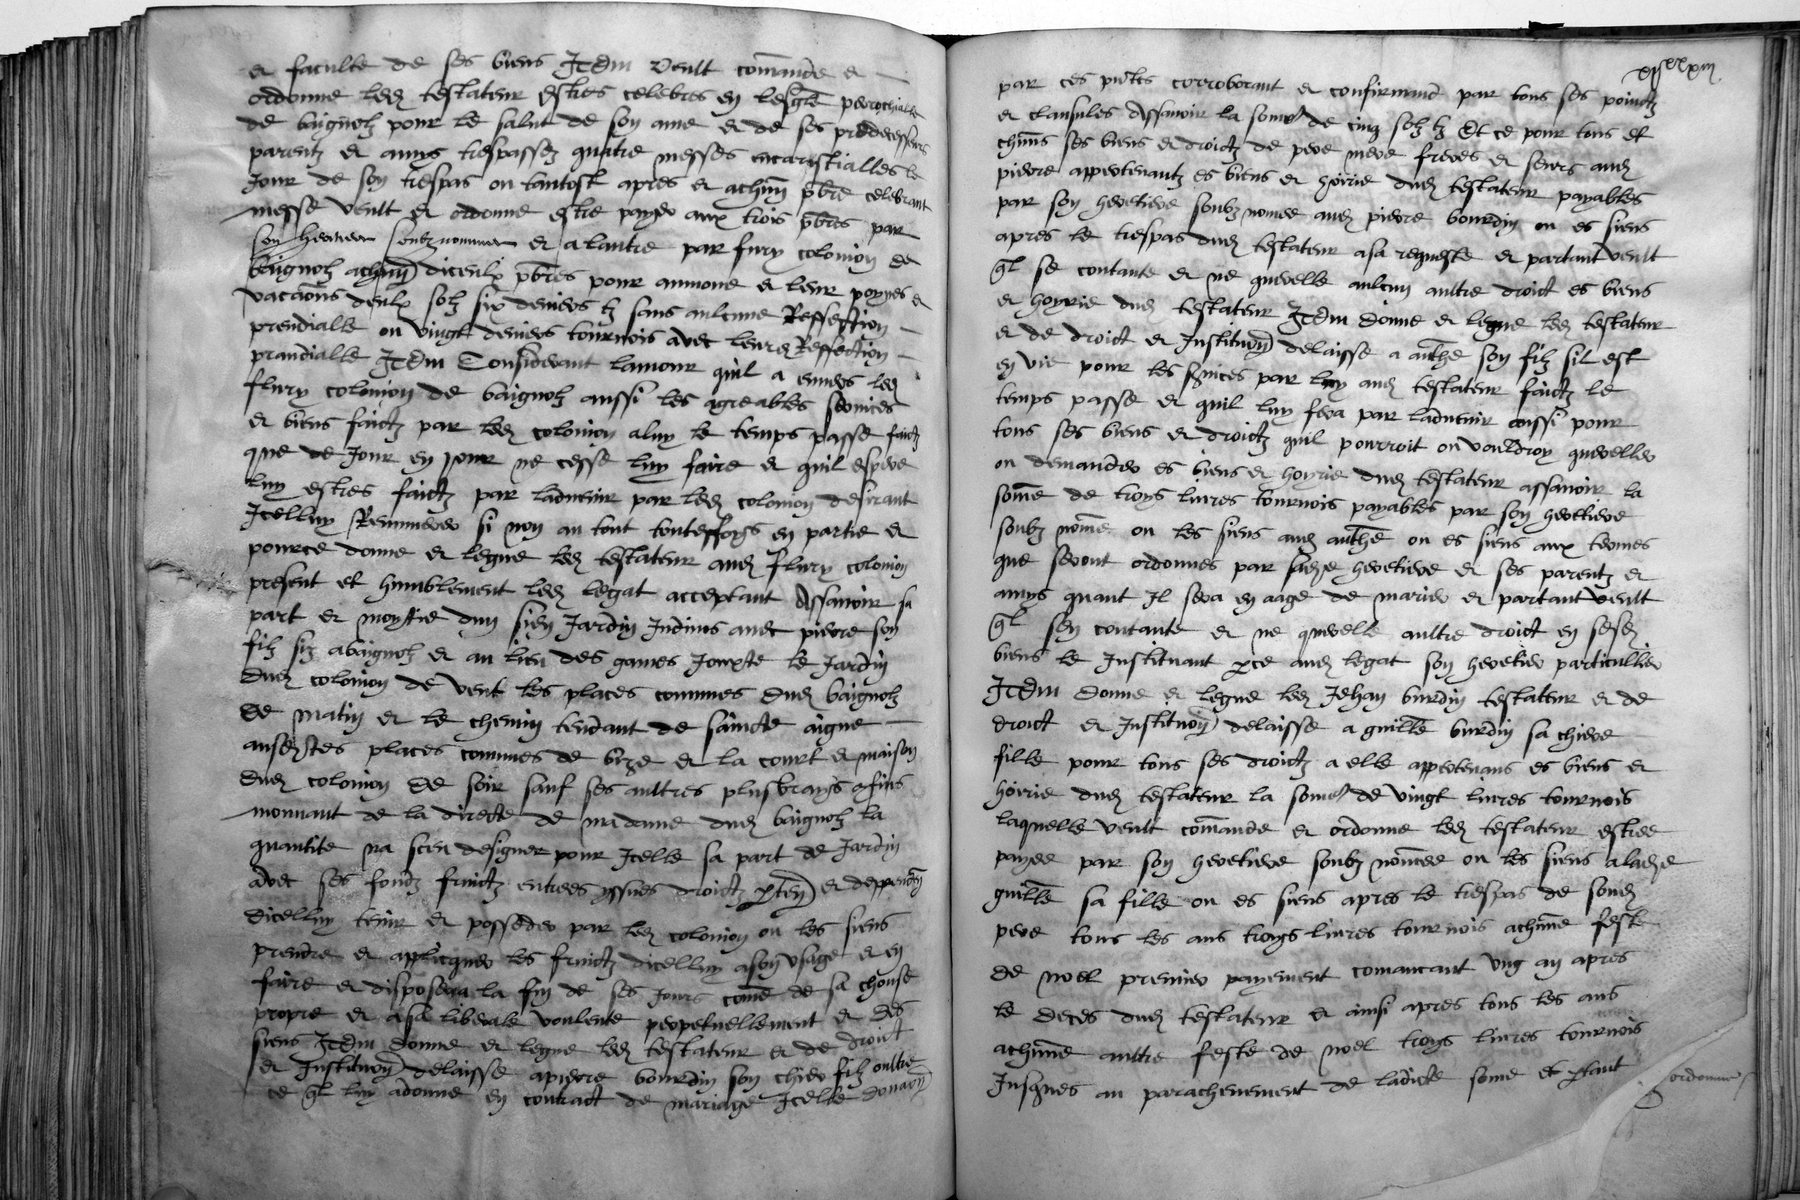 et faculte de ses biens Item veult commande et
ordonne led testateur estres celebres en leglē parrochialle
de baignolz pour le salut de son ame et de ses predecesseurs
parentz et amys trespassez quatre messes eucaristialles le
Jour de son trespas ou tantost apres et achun pbrē celebrant
messe veult et ordonne estre payes aux trois pbrēs par
son heritier soubz nommer et a lautre par flury colonion de
baignolz achun diceulx pbrēs pour aumone et leur poynes et
vacaōns deulx solz six deniers tz sans aulcune Reffection
prendialle ou vingt deniers tournois avec leurd Reffection
prandialle Item Considerant lamour quil a envers led
flury colonion de baignolz aussi les agreables services
et biens faictz par led colonion a luy le temps passe faictz
que de Jour en Jour ne cesse luy faire et quil espere
luy estres faictz par ladvenir par led colonion desirant
Icelluy Remunerer si non au tout touteffoys en partie et
pource donne et legue led testateur aud flury colonion
present et humblement led legat acceptant Assavoir sa
part et moytie dun sien Jardin Indivis avec pierre son
filz siz a baignolz et au lieu des games Jouxte le Jardin
dud colonion de vent les places commues dud baignolz
de matin et le chemin tendant de saincte aigue
ausdstes places commues de bize et la court et maison
dud colonion de soir sauf ses aultres plusbrays cōfins
mouvant de la directe de madame dud baignolz la
quantite na sceu designer pour Icelle sa part de Jardin
avec ses fondz fruictz entrees yssues droictz et
dicelluy tenir et posseder par led colonion ou les siens
prendre et applicquer les fruictz dicelluy a son usage et en
faire et disposer a la fin de ses Jours come de sa chouse
propre et a sa liberale voulente perpetuellement et des
siens Item donne et legue led testateur et de droict
et Instituon delaisse a pierre bourdin son chier filz oultre
ce ql luy a donne en contract de mariage Icelle donaon
par ces pntes corroborant et confirmand par tous ses poinctz
et clausules Assavoir la some de cinq solz tz Et ce pour tous et
chuns ses biens et droictz de pere mere freres et seurs aud
pierre appertenantz es biens et hoirie dud testateur payables
par son heretiere soubz nomee aud pierre bourdin ou es siens
apres le trespas dud testateur a sa requeste et partant veult
ql se contante et ne querelle aulcun aultre droict es biens
et hoyrie dud testateur Item donne et legue led testateur
et de droict et Instituon delaisse a anthe son filz sil est
en vie pour les svices par luy aud testateur faictz le
temps passe et quil luy fera par ladvenir aussi pour
tous ses biens et droictz quil pourroit ou vouldroy quereller
ou demander es biens et hoyrie dud testateur assavoir la
some de troys livres tournois payables par son heretiere
soubz nōmē ou les siens aud anthe ou es siens aux termes
que seront ordonnes par sad heretiere et ses parentz et
amys quant Il sera en aage de marier et partant veult
ql sen contante et ne querelle aultre droict en sesd
biens le Instituant pce aud legat son heretier particullier
Item donne et legue led Jehan burdin testateur et de
droict et Instituon delaisse a guillē burdin sa chiere
fille pour tous ses droictz a elle appertenans es biens et
hoirie dud testateur la some de vingt livres tournois
laquelle veult commande et ordonne led testateur estree
payee par son heretiere soubz nomee ou les siens a lade
guillē sa fille ou es siens apres le trespas de soud
pere tous les ans troys livres tournois achune feste
de noel premier payement comancant ung an apres
le deces dud testateur et ainsi apres tous les ans
achune aultre feste de noel troys livres tournois
Jusques au parachevement de ladicte some et ptant
ordonne